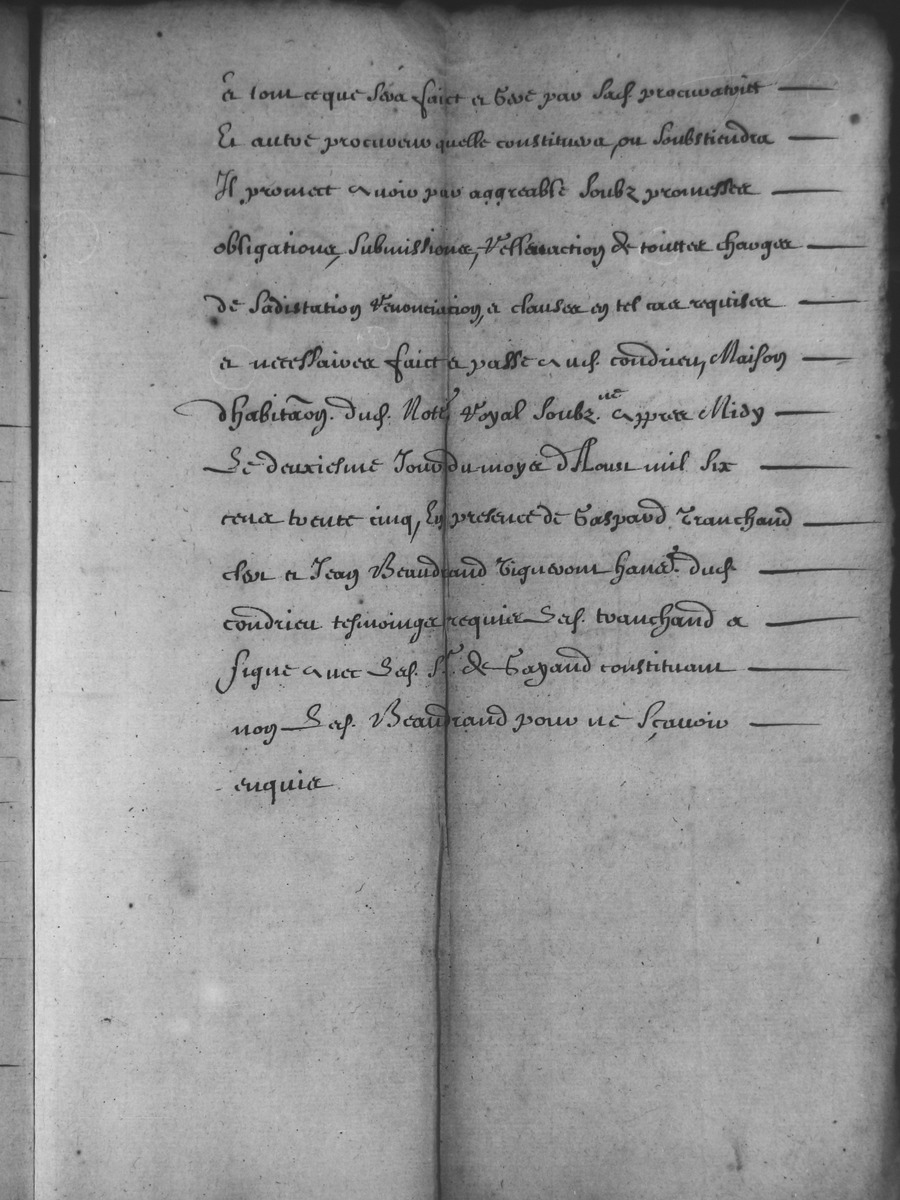 Et tout ce que sera faict et Geré par sad. procuratrice
Et autre procureur quelle constituera, ou soubstiendra
Il promect avoir par aggreable soubz promesses
obligations, submissions, rellevaction de touttes charges
de sadistation renonciation, et clauses en tel cas requises
et necessaires faict et passé aud. condrieu, Maison
dhabitaon. dud. Notre royal soubz.né apprès Midy
Le deuxiesme Jour du moys d'Aoust mil six
cens trente cinq, En presence de Gaspard Tranchand
clerc et Jean Beaudrand vigneront habt. dud.
condrieu tesmoings requis Led. tranchand a
signé avec Led. Sr. de Gayand constituant
non Led. Beaudrand pour ne sçavoir
enquis